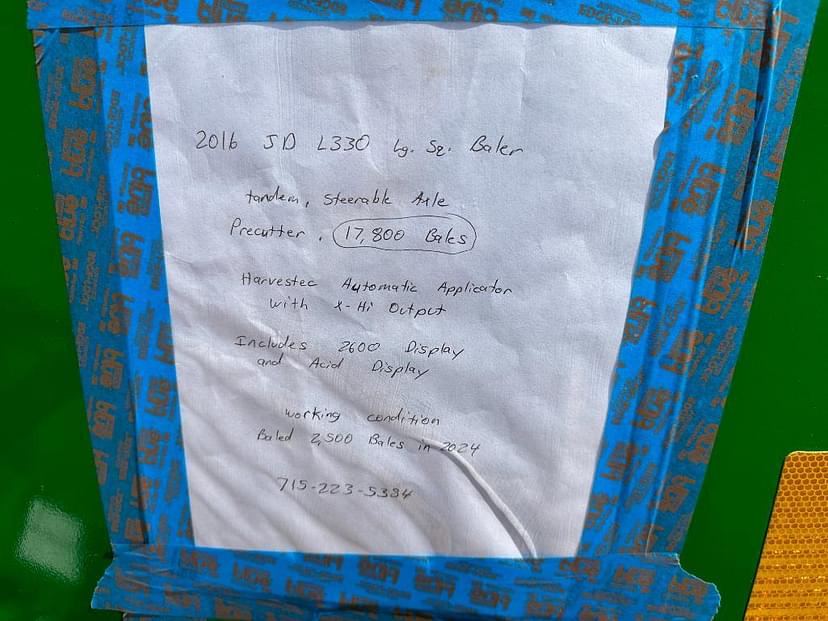 2016 JD L330 Lg. Sq. Baler
tandem, Steerable Axle
Precutter, 17,800 Bales
Harvestec Automatic Applicator
with X-Hi Output
Includes 2600 Display
and Acid Display
working condition
Baled 2,500 Bales in 2024
715-223-5334